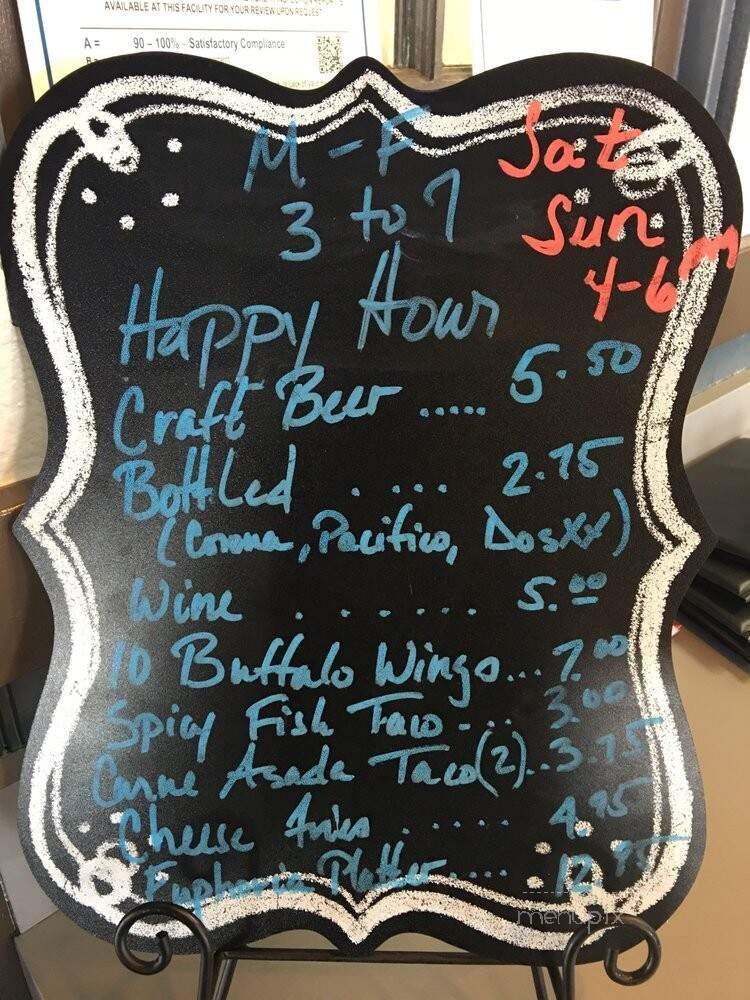 AVAILABLE AT THIS FACILITY FOR YOUR REVIEW UPON REQUEST
A = 90 – 100% – Satisfactory Compliance
M - F
3 to 7
Sat
Sun
4-6pm
Happy Hour
Craft Beer ..... 5.50
Bottled .... 2.75
(Corona, Pacifico, Dos XX)
Wine ...... 5.00
10 Buffalo Wings... 7.00
Spicy Fish Taco - .. 3.00
Carne Asada Taco (2).. 3.75
Cheese fries ..... 4.95
Euphoria Platter.... 12.95
menupix